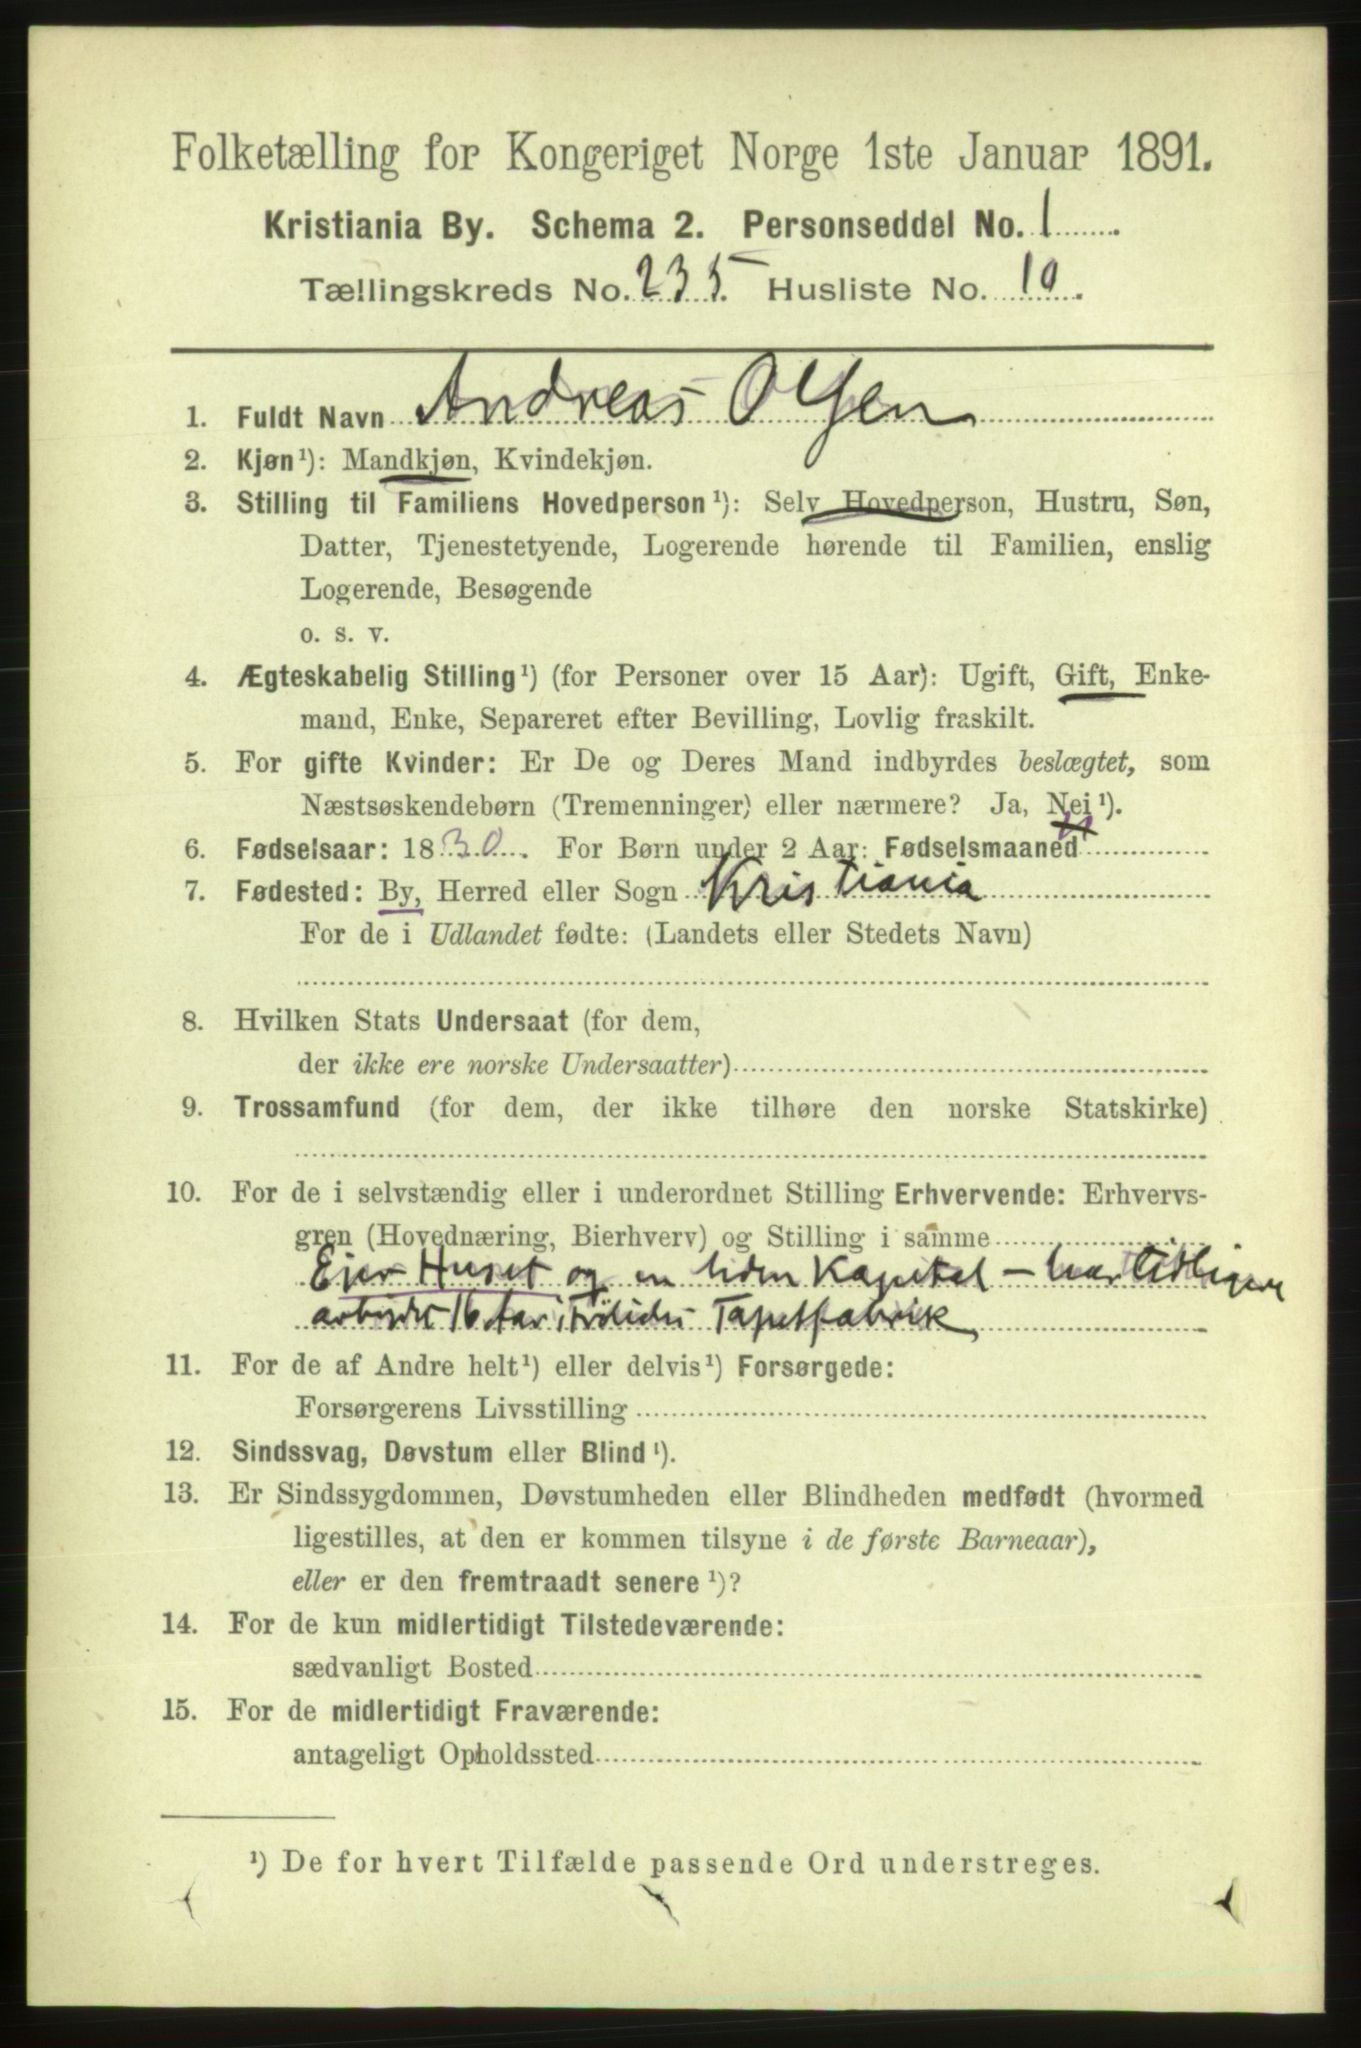 Folketælling for Kongeriget Norge 1ste Januar 1891.
Kristiania By. Schema 2. Personseddel No. 1
Tællingskreds No. 235. Husliste No. 10.
1. Fuldt Navn Andreas Olsen
2. Kjøn¹): Mandkjøn, Kvindekjøn.
3. Stilling til Familiens Hovedperson¹): Selv Hovedperson, Hustru, Søn,
Datter, Tjenestetyende, Logerende hørende til Familien, enslig
Logerende, Besøgende
o. s. v.
4. Ægteskabelig Stilling¹) (for Personer over 15 Aar): Ugift, Gift, Enke-
mand, Enke, Separeret efter Bevilling, Lovlig fraskilt.
5. For gifte Kvinder: Er De og Deres Mand indbyrdes beslægtet, som
Næstsøskendebørn (Tremenninger) eller nærmere? Ja, Nei¹).
6. Fødselsaar: 1830. For Børn under 2 Aar: Fødselsmaaned
7. Fødested: By, Herred eller Sogn Kristiania
For de i Udlandet fødte: (Landets eller Stedets Navn)
8. Hvilken Stats Undersaat (for dem,
der ikke ere norske Undersaatter)
9. Trossamfund (for dem, der ikke tilhøre den norske Statskirke)
10. For de i selvstændig eller i underordnet Stilling Erhvervende: Erhvervs-
gren (Hovednæring, Bierhverv) og Stilling i samme
Eier Huset og en liden Kapital – har tidligere
arbeidet 16 Aar i Tapetfabrik
11. For de af Andre helt¹) eller delvis¹) Forsørgede:
Forsørgerens Livsstilling
12. Sindssvag, Døvstum eller Blind¹).
13. Er Sindssygdommen, Døvstumheden eller Blindheden medfødt (hvormed
ligestilles, at den er kommen tilsyne i de første Barneaar),
eller er den fremtraadt senere¹)?
14. For de kun midlertidigt Tilstedeværende:
sædvanligt Bosted
15. For de midlertidigt Fraværende:
antageligt Opholdssted
¹) De for hvert Tilfælde passende Ord understreges.